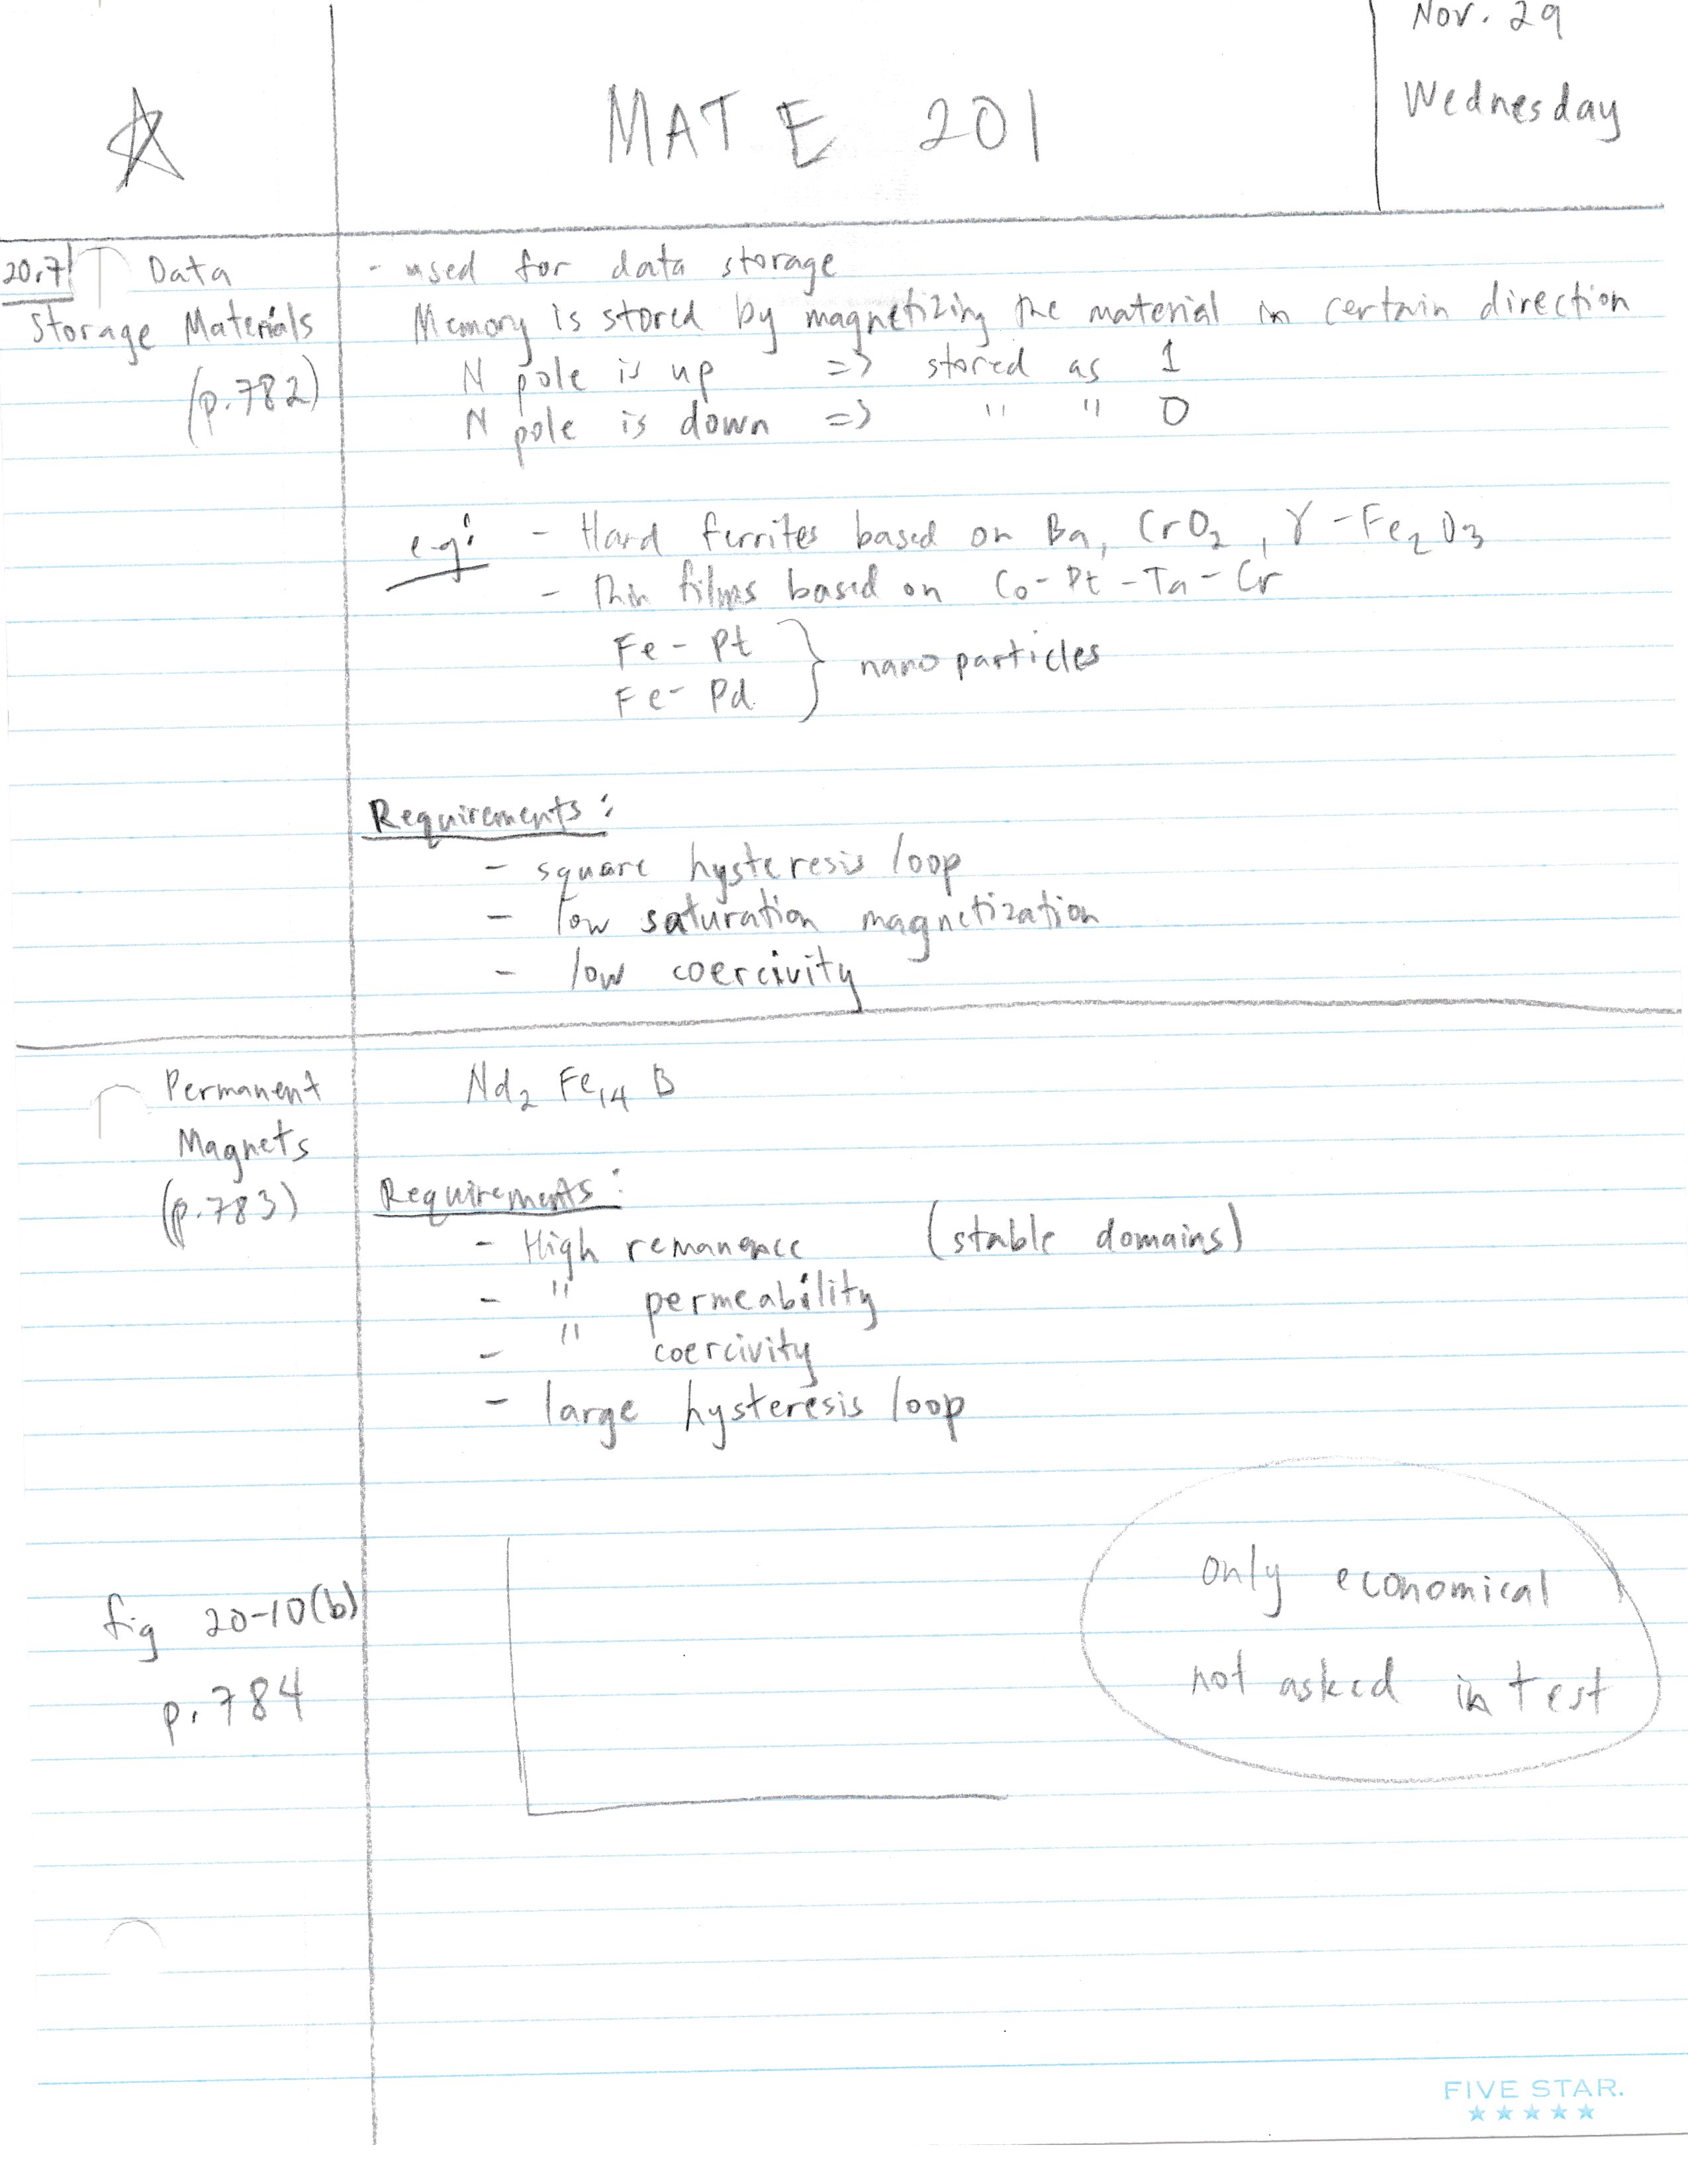 Nov. 29
Wednesday
MAT E 201
20.7 Data
Storage Materials
(p.782)
- used for data storage
Memory is stored by magnetizing the material in certain direction
N pole is up => stored as 1
N pole is down => " " 0
e.g: - Hard ferrites based on Ba, CrO2, γ-Fe2O3
- thin films based on Co-Pt-Ta-Cr
Fe - Pt
Fe - Pd } nanoparticles
Requirements:
- square hysteresis loop
- low saturation magnetization
- low coercivity
Permanent
Magnets
(p.783)
Nd2 Fe14 B
Requirements:
- High remanence (stable domains)
- " permeability
- " coercivity
- large hysteresis loop
fig 20-10(b)
p.784
only economical
not asked in test
FIVE STAR.